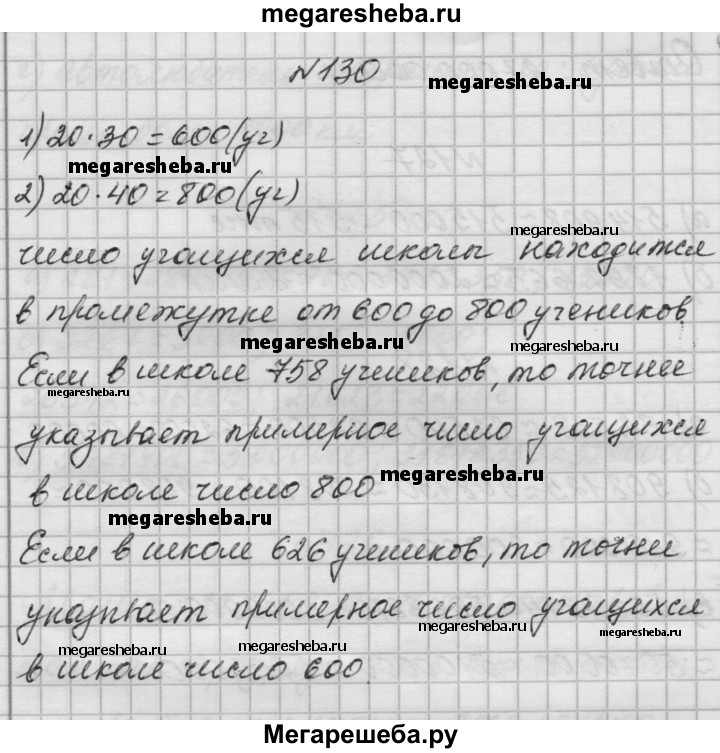 megaresheba.ru
№130
megaresheba.ru
1) 20·30=600(уч)
megaresheba.ru
2) 20·40=800(уч)
число учащихся школы находится
megaresheba.ru
в промежутке от 600 до 800 учеников
megaresheba.ru
megaresheba.ru
Если в школе 758 учеников, то точнее
megaresheba.ru
указывает примерное число учащихся
в школе число 800
megaresheba.ru
megaresheba.ru
Если в школе 626 учеников, то точнее
указывает примерное число учащихся
megaresheba.ru
megaresheba.ru
megaresheba.ru
в школе число 600
Мегарешеба.ру